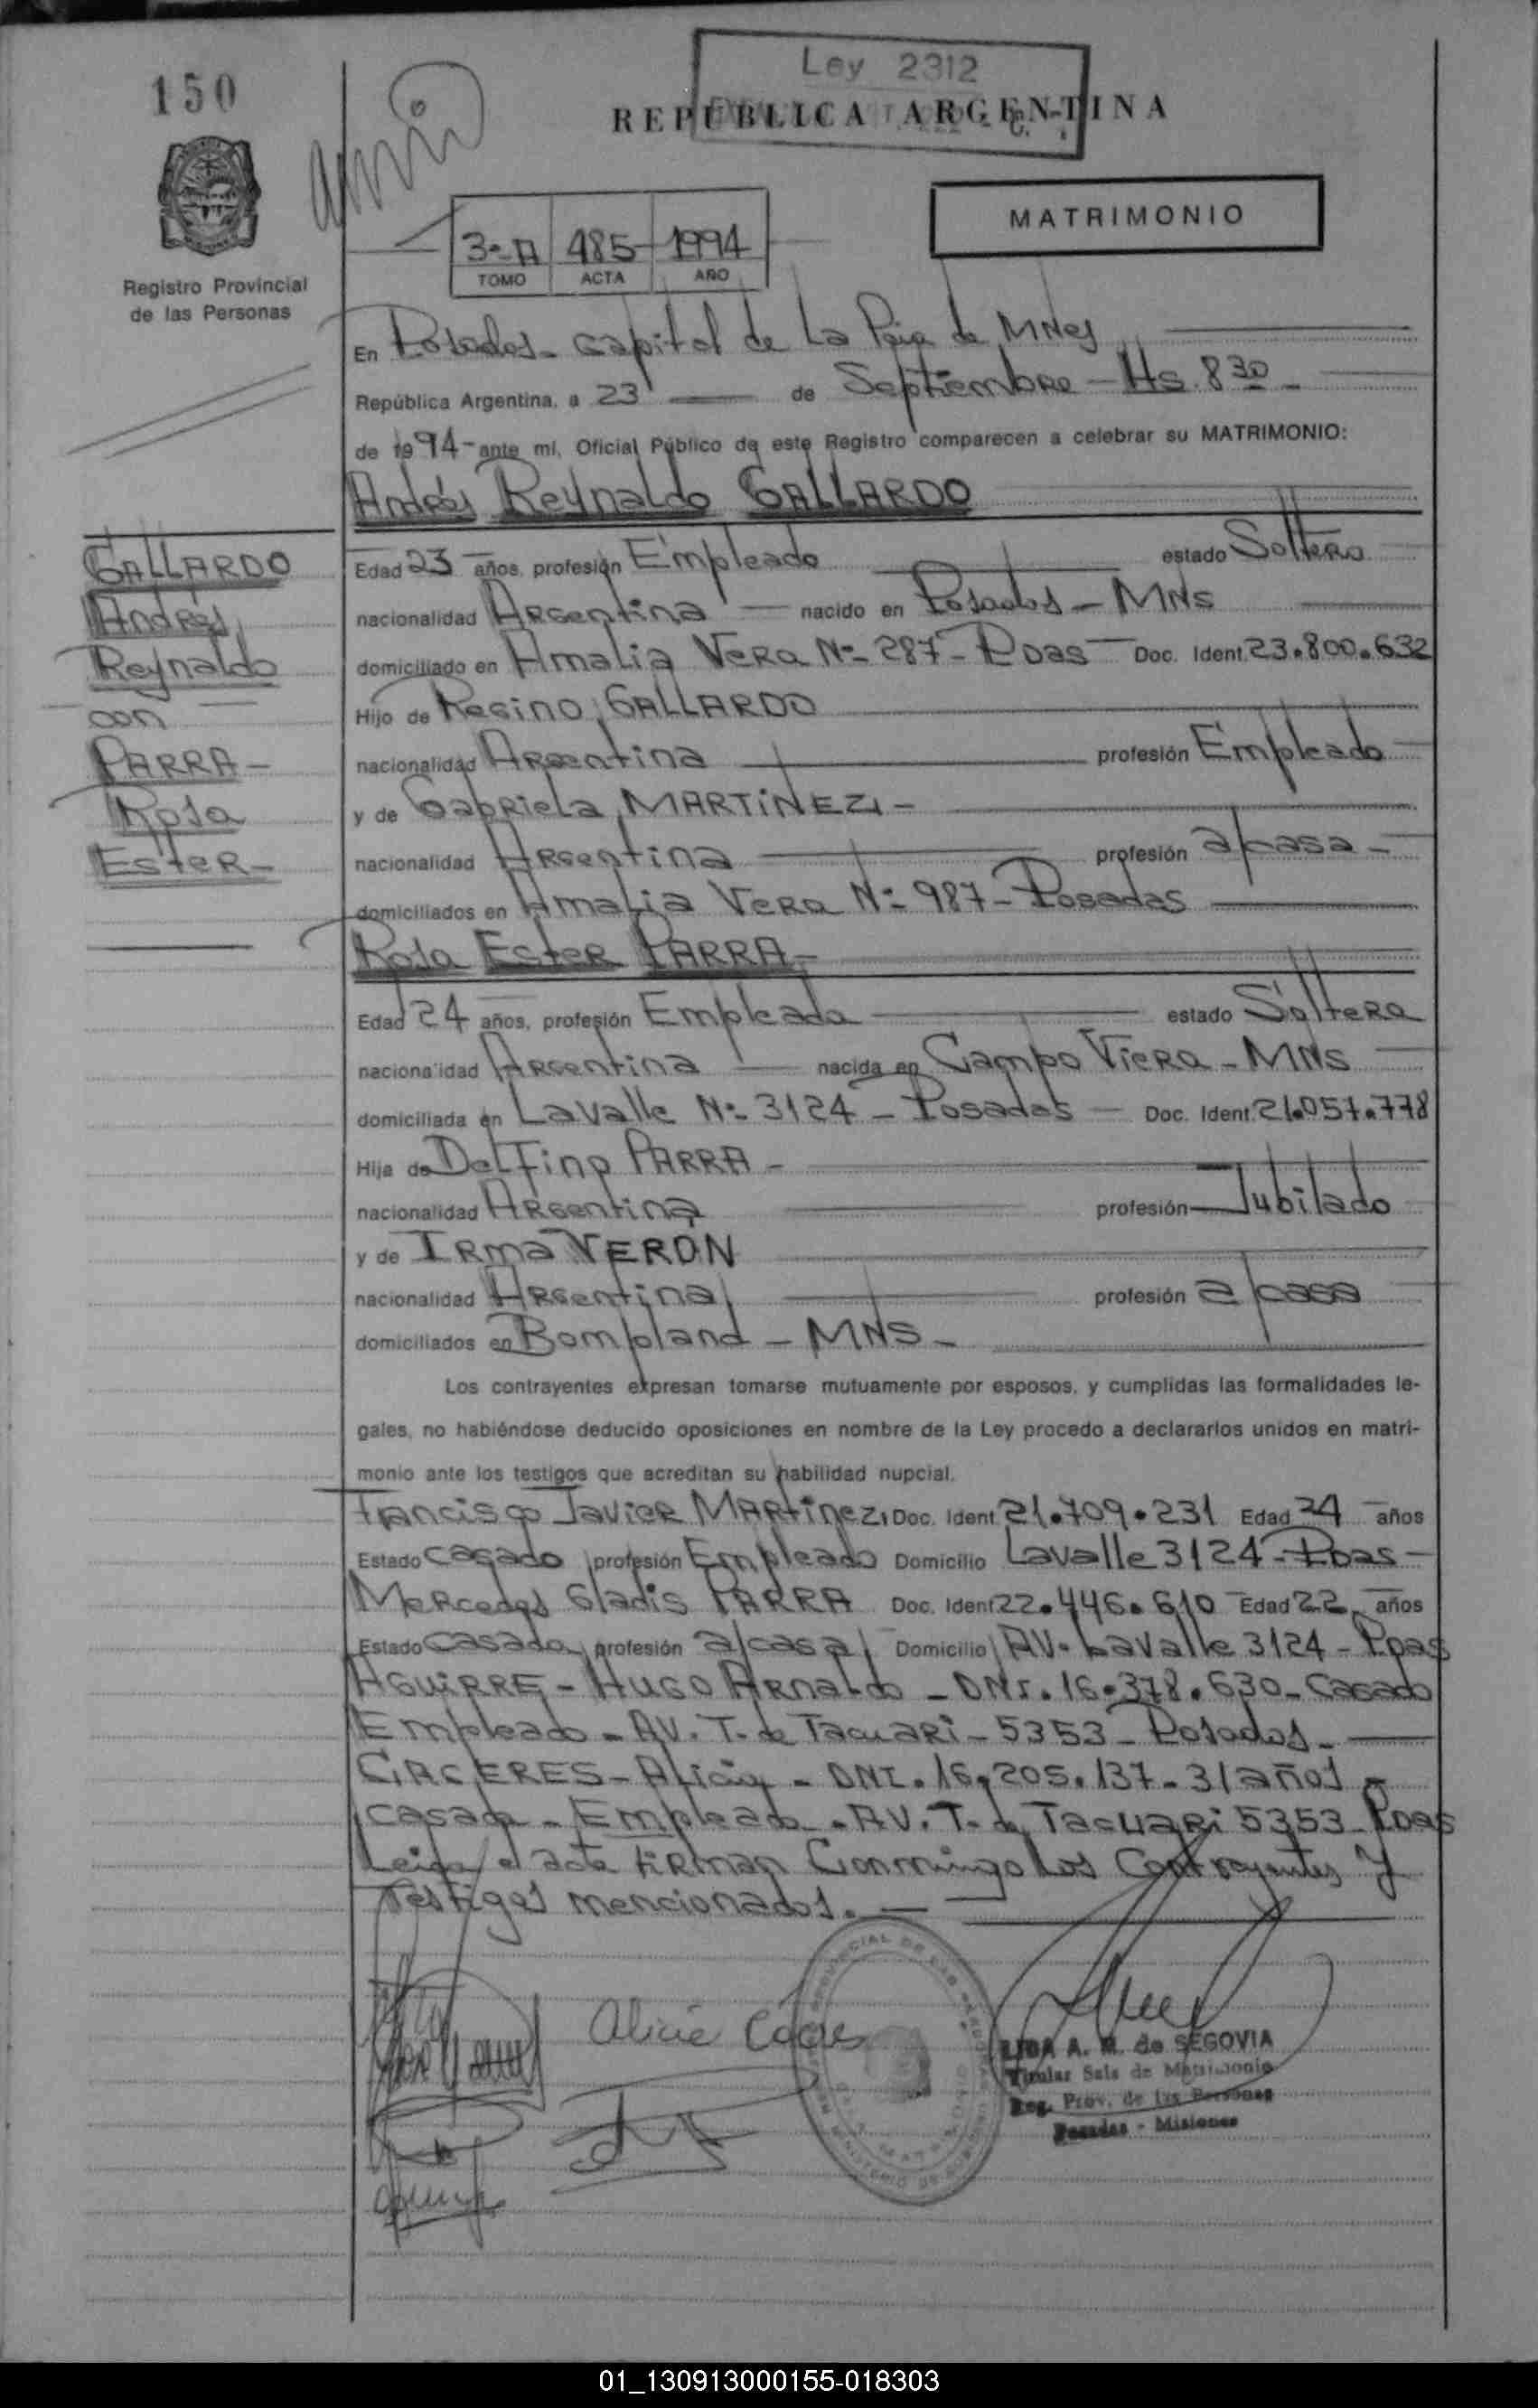 150
Ley 2312
REPUBLICA ARGENTINA
MATRIMONIO
3-A 485 1994
TOMO ACTA AÑO
Registro Provincial
de las Personas
En Posadas - Capital de La Pcia de MNes
República Argentina, a 23 de Septiembre - Hs. 8 30 -
de 1994 - ante mí, Oficial Público de este Registro comparecen a celebrar su MATRIMONIO:
Andrés Reynaldo GALLARDO
GALLARDO
Andrés
Reynaldo
con
PARRA -
Rosa
Ester -
Edad 23 años, profesión Empleado estado Soltero
nacionalidad Argentina nacido en Posadas - MNS
domiciliado en Amalia Vera Nº 287 - Pdas - Doc. Ident. 23.800.632
Hijo de Regino GALLARDO
nacionalidad Argentina profesión Empleado
y de Gabriela MARTINEZ -
nacionalidad Argentina profesión a/casa -
domiciliados en Amalia Vera Nº 987 - Posadas
Rosa Ester PARRA -
Edad 24 años, profesión Empleada estado Soltera
nacionalidad Argentina nacida en Campo Viera - MNS
domiciliada en Lavalle Nº 3124 - Posadas - Doc. Ident. 21.057.778
Hija de Delfino PARRA -
nacionalidad Argentina profesión Jubilado
y de Irma VERON
nacionalidad Argentina profesión a/casa
domiciliados en Bompland - MNS -
Los contrayentes expresan tomarse mutuamente por esposos, y cumplidas las formalidades le-
gales, no habiéndose deducido oposiciones en nombre de la Ley procedo a declararlos unidos en matri-
monio ante los testigos que acreditan su habilidad nupcial.
Francisco Javier Martinez, Doc. Ident. 21.709.231 Edad 24 años
Estado casado profesión Empleado Domicilio Lavalle 3124 - Pdas -
Mercedes Gladis PARRA Doc. Ident. 22.446.610 Edad 22 años
Estado Casada profesión a/casa Domicilio AV. Lavalle 3124 - Pdas
AGUIRRE - HUGO Arnaldo - DNI. 16.378.630 - Casado
Empleado - AV. T. de Tacuari - 5353 - Posadas -
CACERES - Alicia - DNI. 16.205.137 - 31 años -
casada - Empleada - AV. T. de Tacuari 5353 - Pdas
Leida el acta firman Conmingo los Contrayentes y
Testigos mencionados. -
Alicia Caceres
LIDA A. R. de SEGOVIA
Titular Sala de Matrimonio
Reg. Prov. de las Personas
Posadas - Misiones
01_130913000155-018303